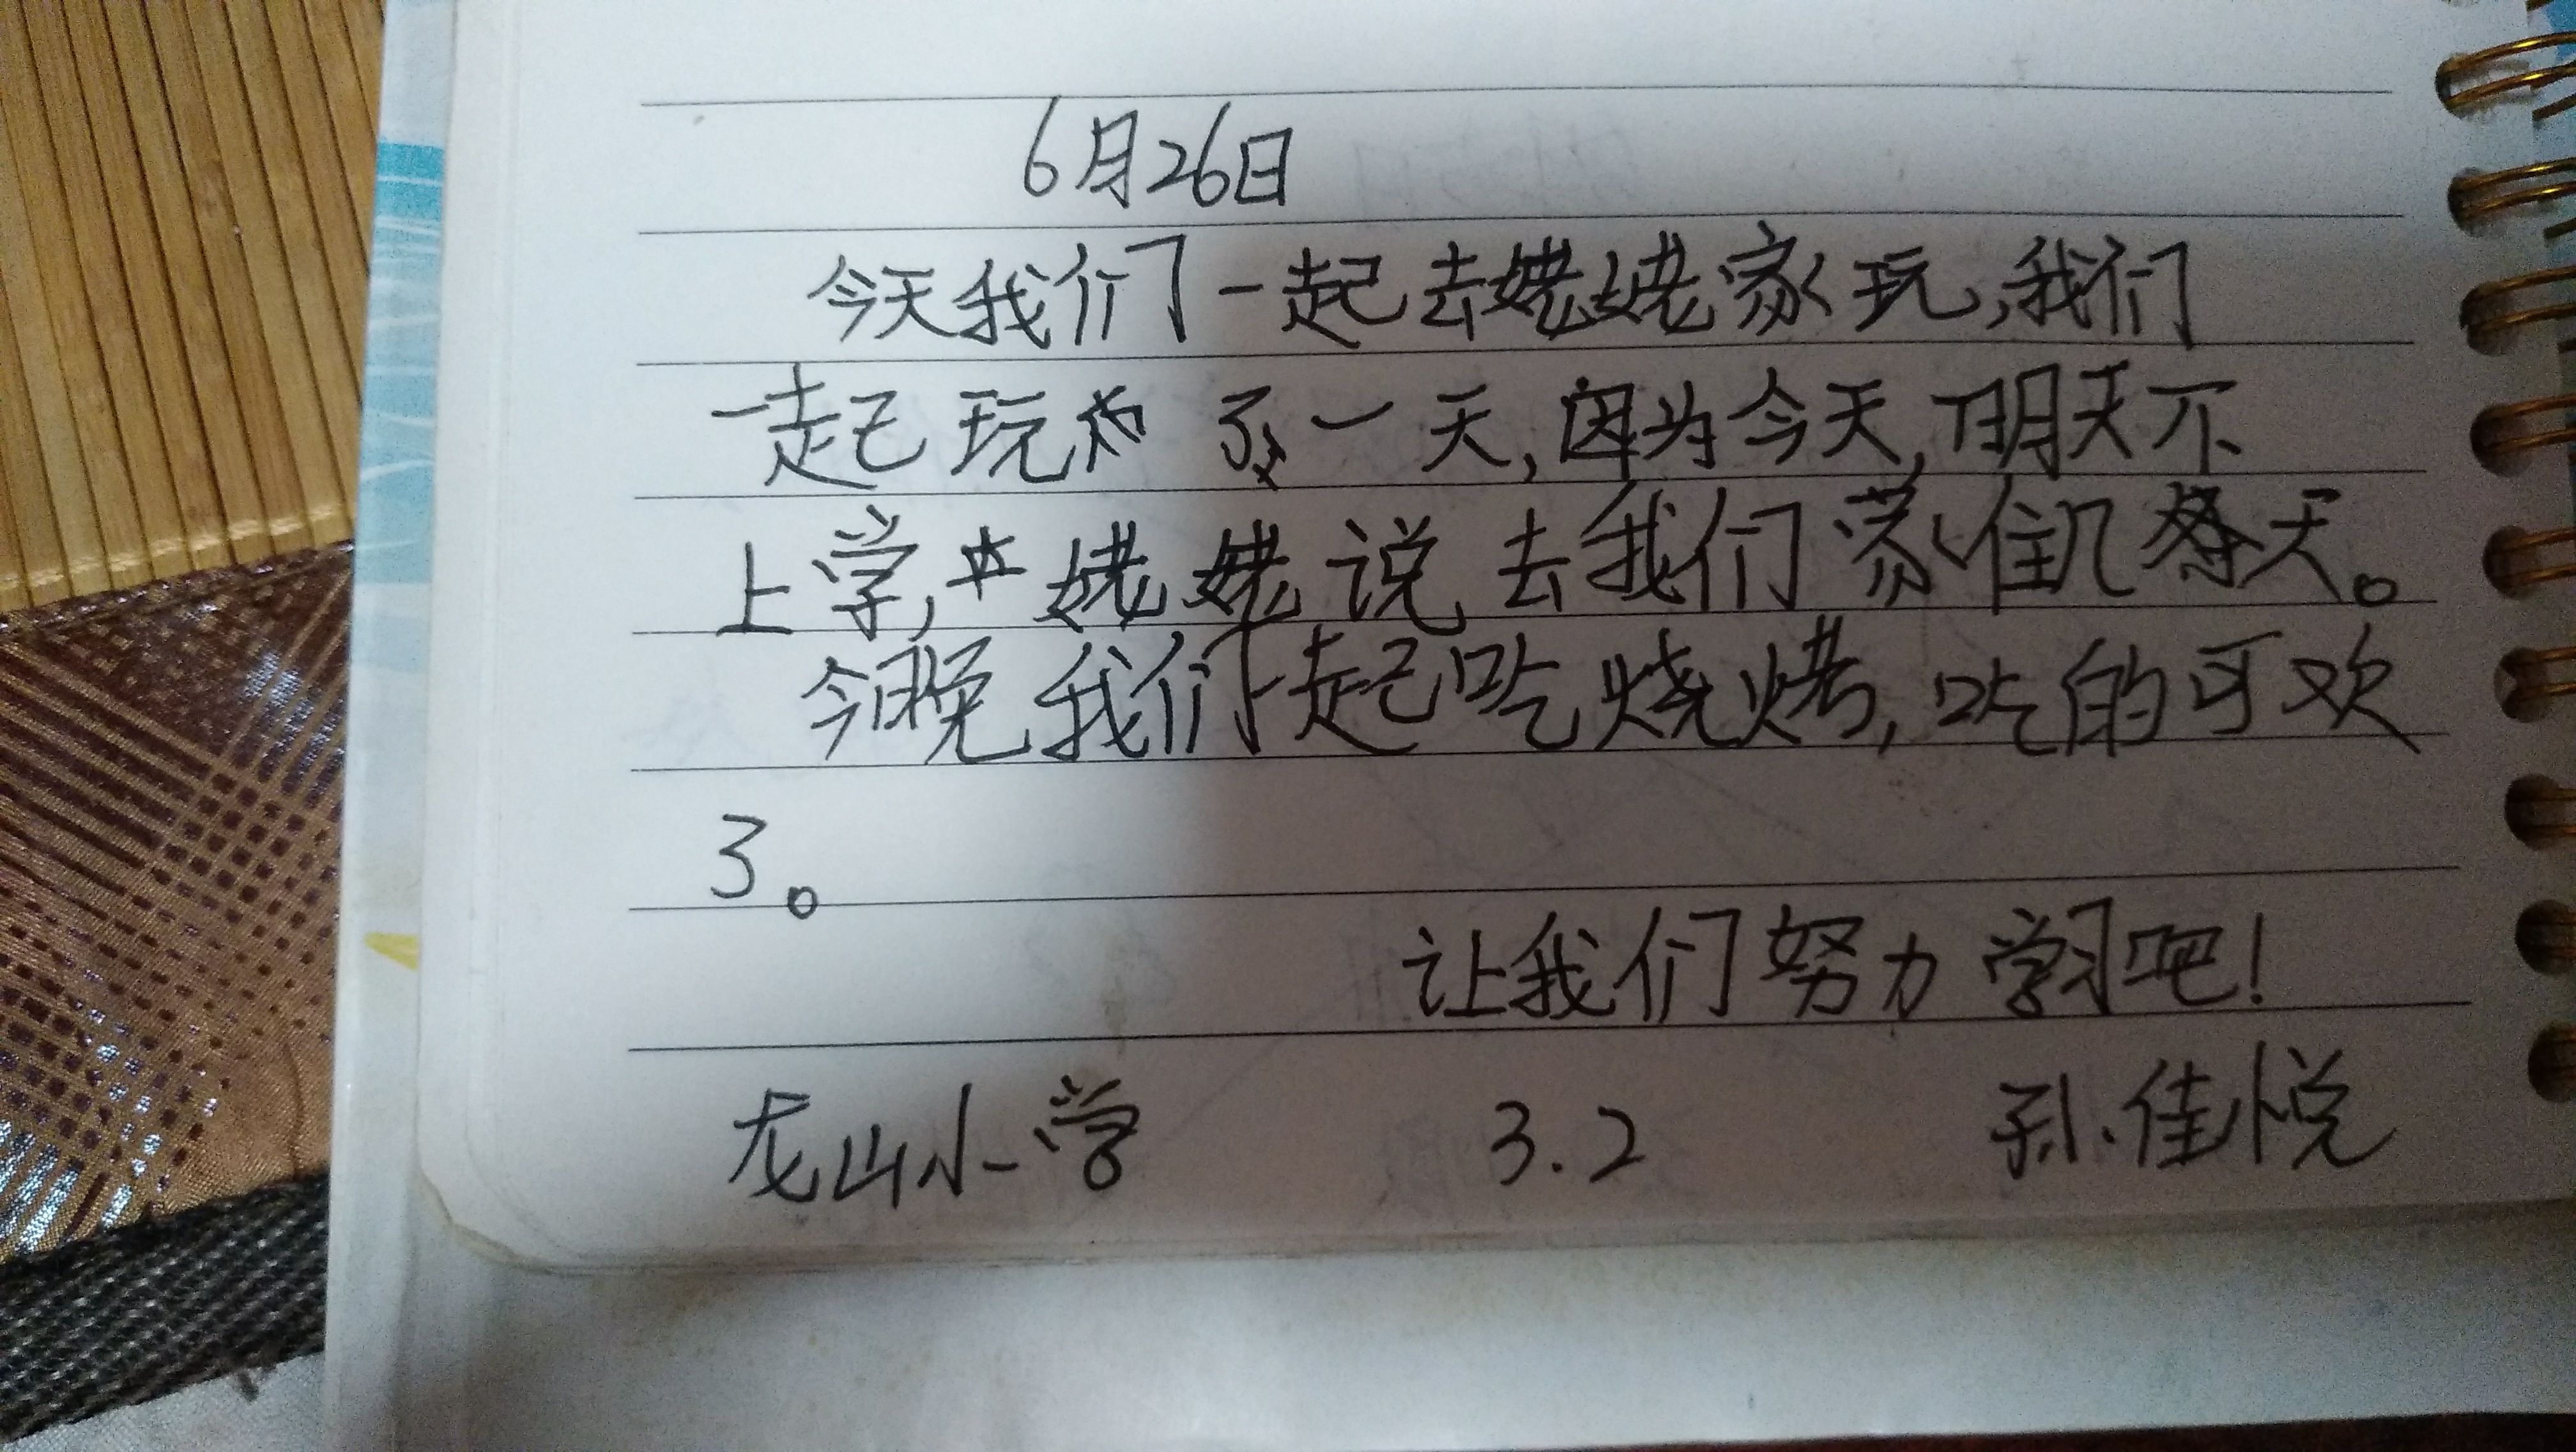 6月26日
今天我们一起去姥姥家玩,我们
一起玩了一天,因为今天,明天不
上学,姥姥说去我们家住几天。
今晚我们一起吃烧烤,吃的可欢
了。
让我们努力学习吧!
龙山小学 3.2 孙佳悦